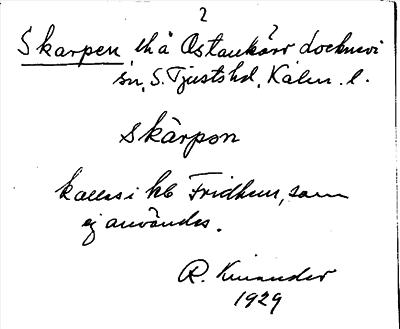 2
Skarpen, lh å Östankärr Locknevi
sn, S. Tjusts hd, Kalm. l.
skärpon
kallas i kb Fridhem, som
ej användes.
R. Kinander
1929